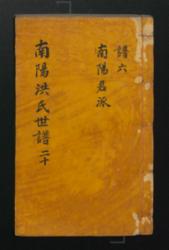 譜六
南陽君派
南陽洪氏世譜 二十